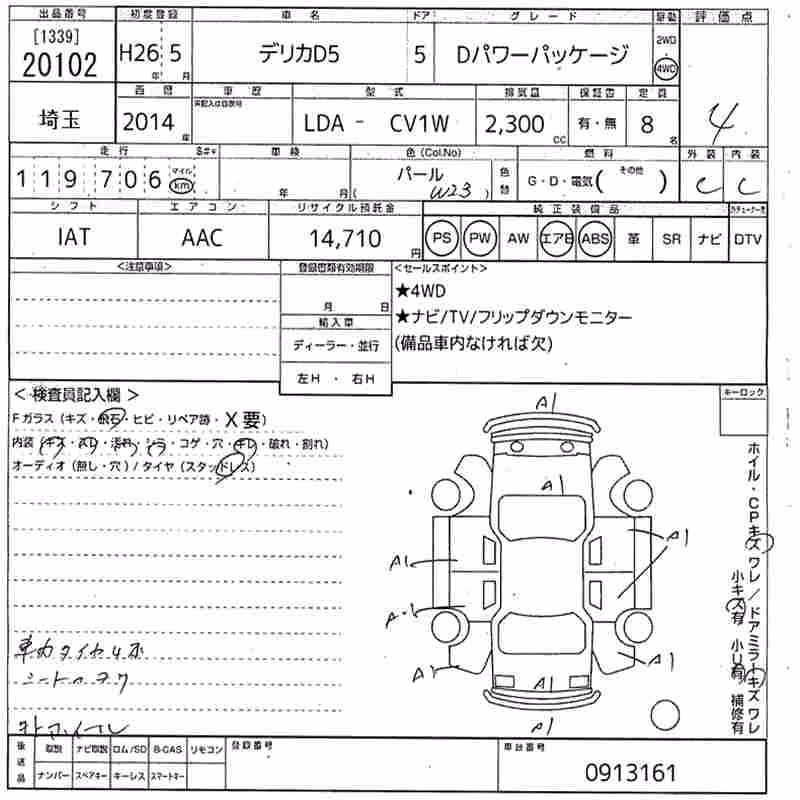 出品番号 初度登録 車名 ドア グレード 駆動 評価点
[1339] 20102 H26年 5月 デリカD5 5 Dパワーパッケージ 2WD・4WD 4
西暦 車歴 型式 排気量 保証書 定員
未記入は自家用
埼玉 2014年 LDA - CV1W 2,300CC 有・無 8名
走行 S#＊ 車検 色(Col.No) 燃料 外装 内装
119706 マイル km 年 月 パール (W23) 色替 G・D・電気(その他) C C
シフト エアコン リサイクル預託金 純正装備品
IAT AAC 14,710円 PS PW AW エアB ABS 革 SR ナビ DTV
<注意事項> 登録書類有効期限 <セールスポイント>
月 日
★4WD
輸入車
★ナビ/TV/フリップダウンモニター
ディーラー・並行
(備品車内なければ欠)
左H ・ 右H
< 検査員記入欄 > キーロック
Fガラス (キズ・飛石・ヒビ・リペア跡・X要)
内装 (キズ・スレ・汚れ・シミ・コゲ・穴・キレ・破れ・割れ)
オーディオ (無し・穴) / タイヤ (スタッドレス)
A1
A1
A1
A1
A1
A1
A1
A1
A1
ホイル・CPキズ ワレ / ドアミラーキズ ワレ
小キズ有 小U有 補修有
車内タイヤ4本
後送品 取説 ナビ取説 ロム/SD B-CAS リモコン 登録番号 車台番号
ナンバー スペアキー キーレス スマートキー
0913161